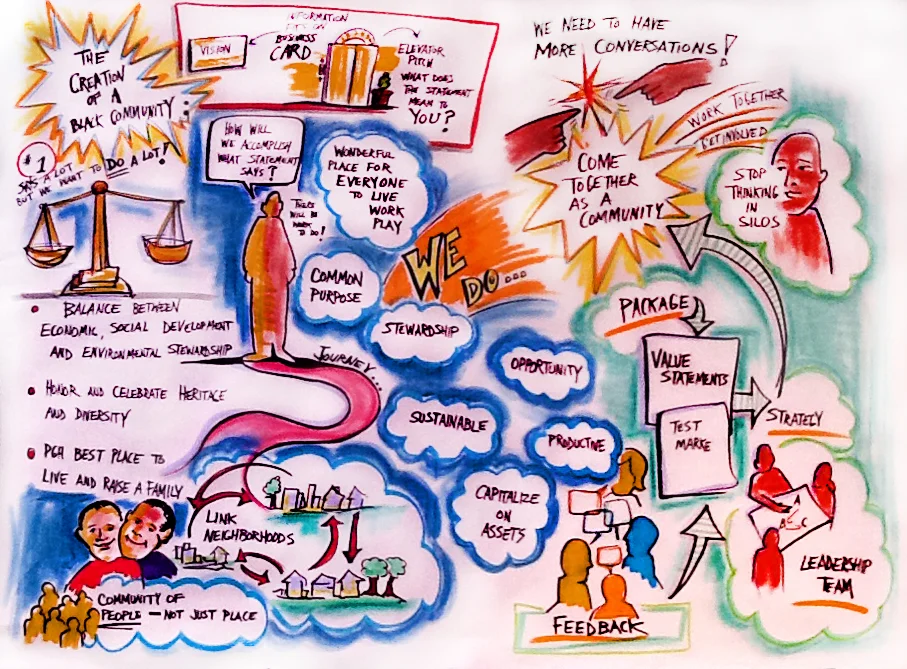 THE
CREATION
OF A
BLACK COMMUNITY
INFORMATION
FITS ON
BUSINESS
CARD
VISION
ELEVATOR
PITCH
WHAT DOES
THE STATEMENT
MEAN TO
YOU?
WE NEED TO HAVE
MORE CONVERSATIONS!
WORK TOGETHER
GET INVOLVED
COME
TOGETHER
AS A
COMMUNITY
STOP
THINKING
IN
SILOS
#1
SAYS A LOT
BUT WE WANT TO DO A LOT!
HOW WILL
WE ACCOMPLISH
WHAT STATEMENT
SAYS?
THERE
WILL BE
WORK
TO DO!
WONDERFUL
PLACE FOR
EVERYONE
TO LIVE
WORK
PLAY
COMMON
PURPOSE
WE
DO...
STEWARDSHIP
OPPORTUNITY
SUSTAINABLE
PRODUCTIVE
CAPITALIZE
ON
ASSETS
• BALANCE BETWEEN
ECONOMIC, SOCIAL DEVELOPMENT
AND ENVIRONMENTAL STEWARDSHIP
• HONOR AND CELEBRATE HERITAGE
AND DIVERSITY
• PGH BEST PLACE TO
LIVE AND RAISE A FAMILY
JOURNEY...
LINK
NEIGHBORHOODS
COMMUNITY OF
PEOPLE - NOT JUST PLACE
PACKAGE
VALUE
STATEMENTS
TEST
MARKE
STRATELY
A
B C
LEADERSHIP
TEAM
FEEDBACK